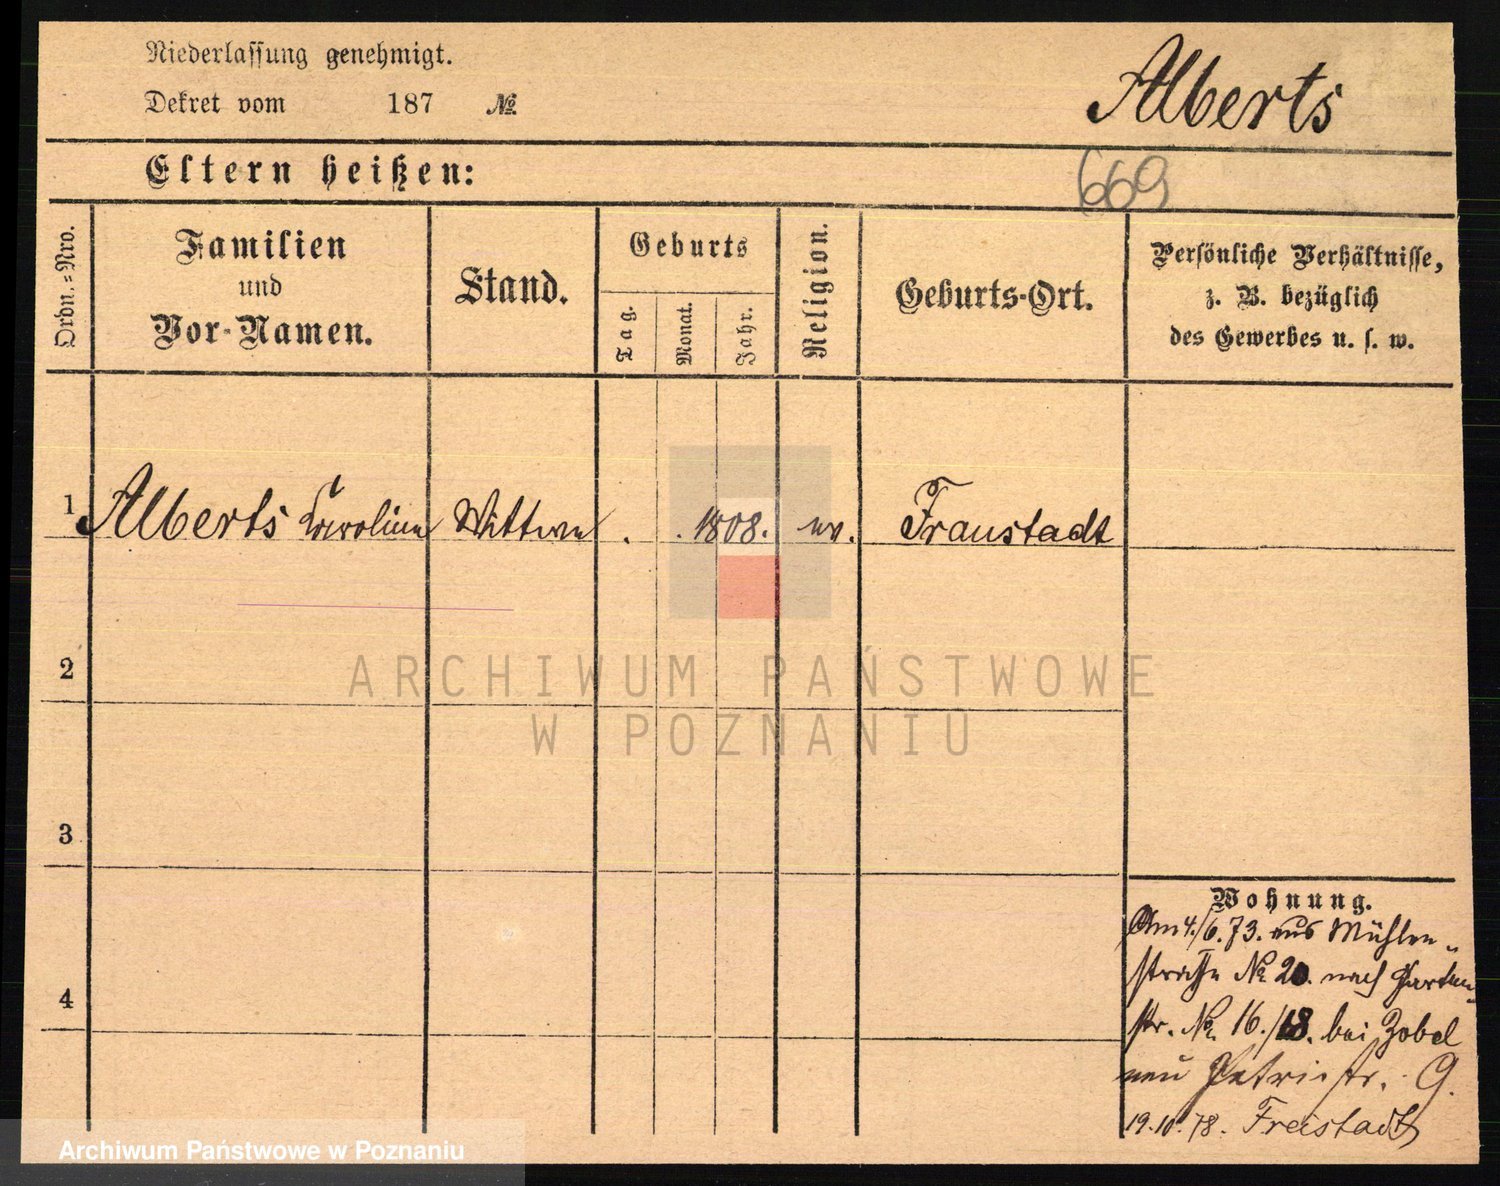 Niederlassung genehmigt.
Dekret vom 187 №
Alberts
Eltern heißen:
669
Ordn.=Nro.
Familien
und
Vor-Namen.
Stand.
Geburts
Tag.
Monat.
Jahr.
Religion.
Geburts-Ort.
Persönliche Verhältnisse,
z. B. bezüglich
des Gewerbes u. s. w.
1 Alberts Caroline Wittwe . . 1808. ev. Fraustadt
2
3
4
Wohnung.
Am 4./6.73. aus Mühlen-
straße № 20. nach Garten-
str. № 16./18. bei Zobel
neu Petristr. 9.
19.10.78. Freistadt
ARCHIWUM PAŃSTWOWE
W POZNANIU
Archiwum Państwowe w Poznaniu